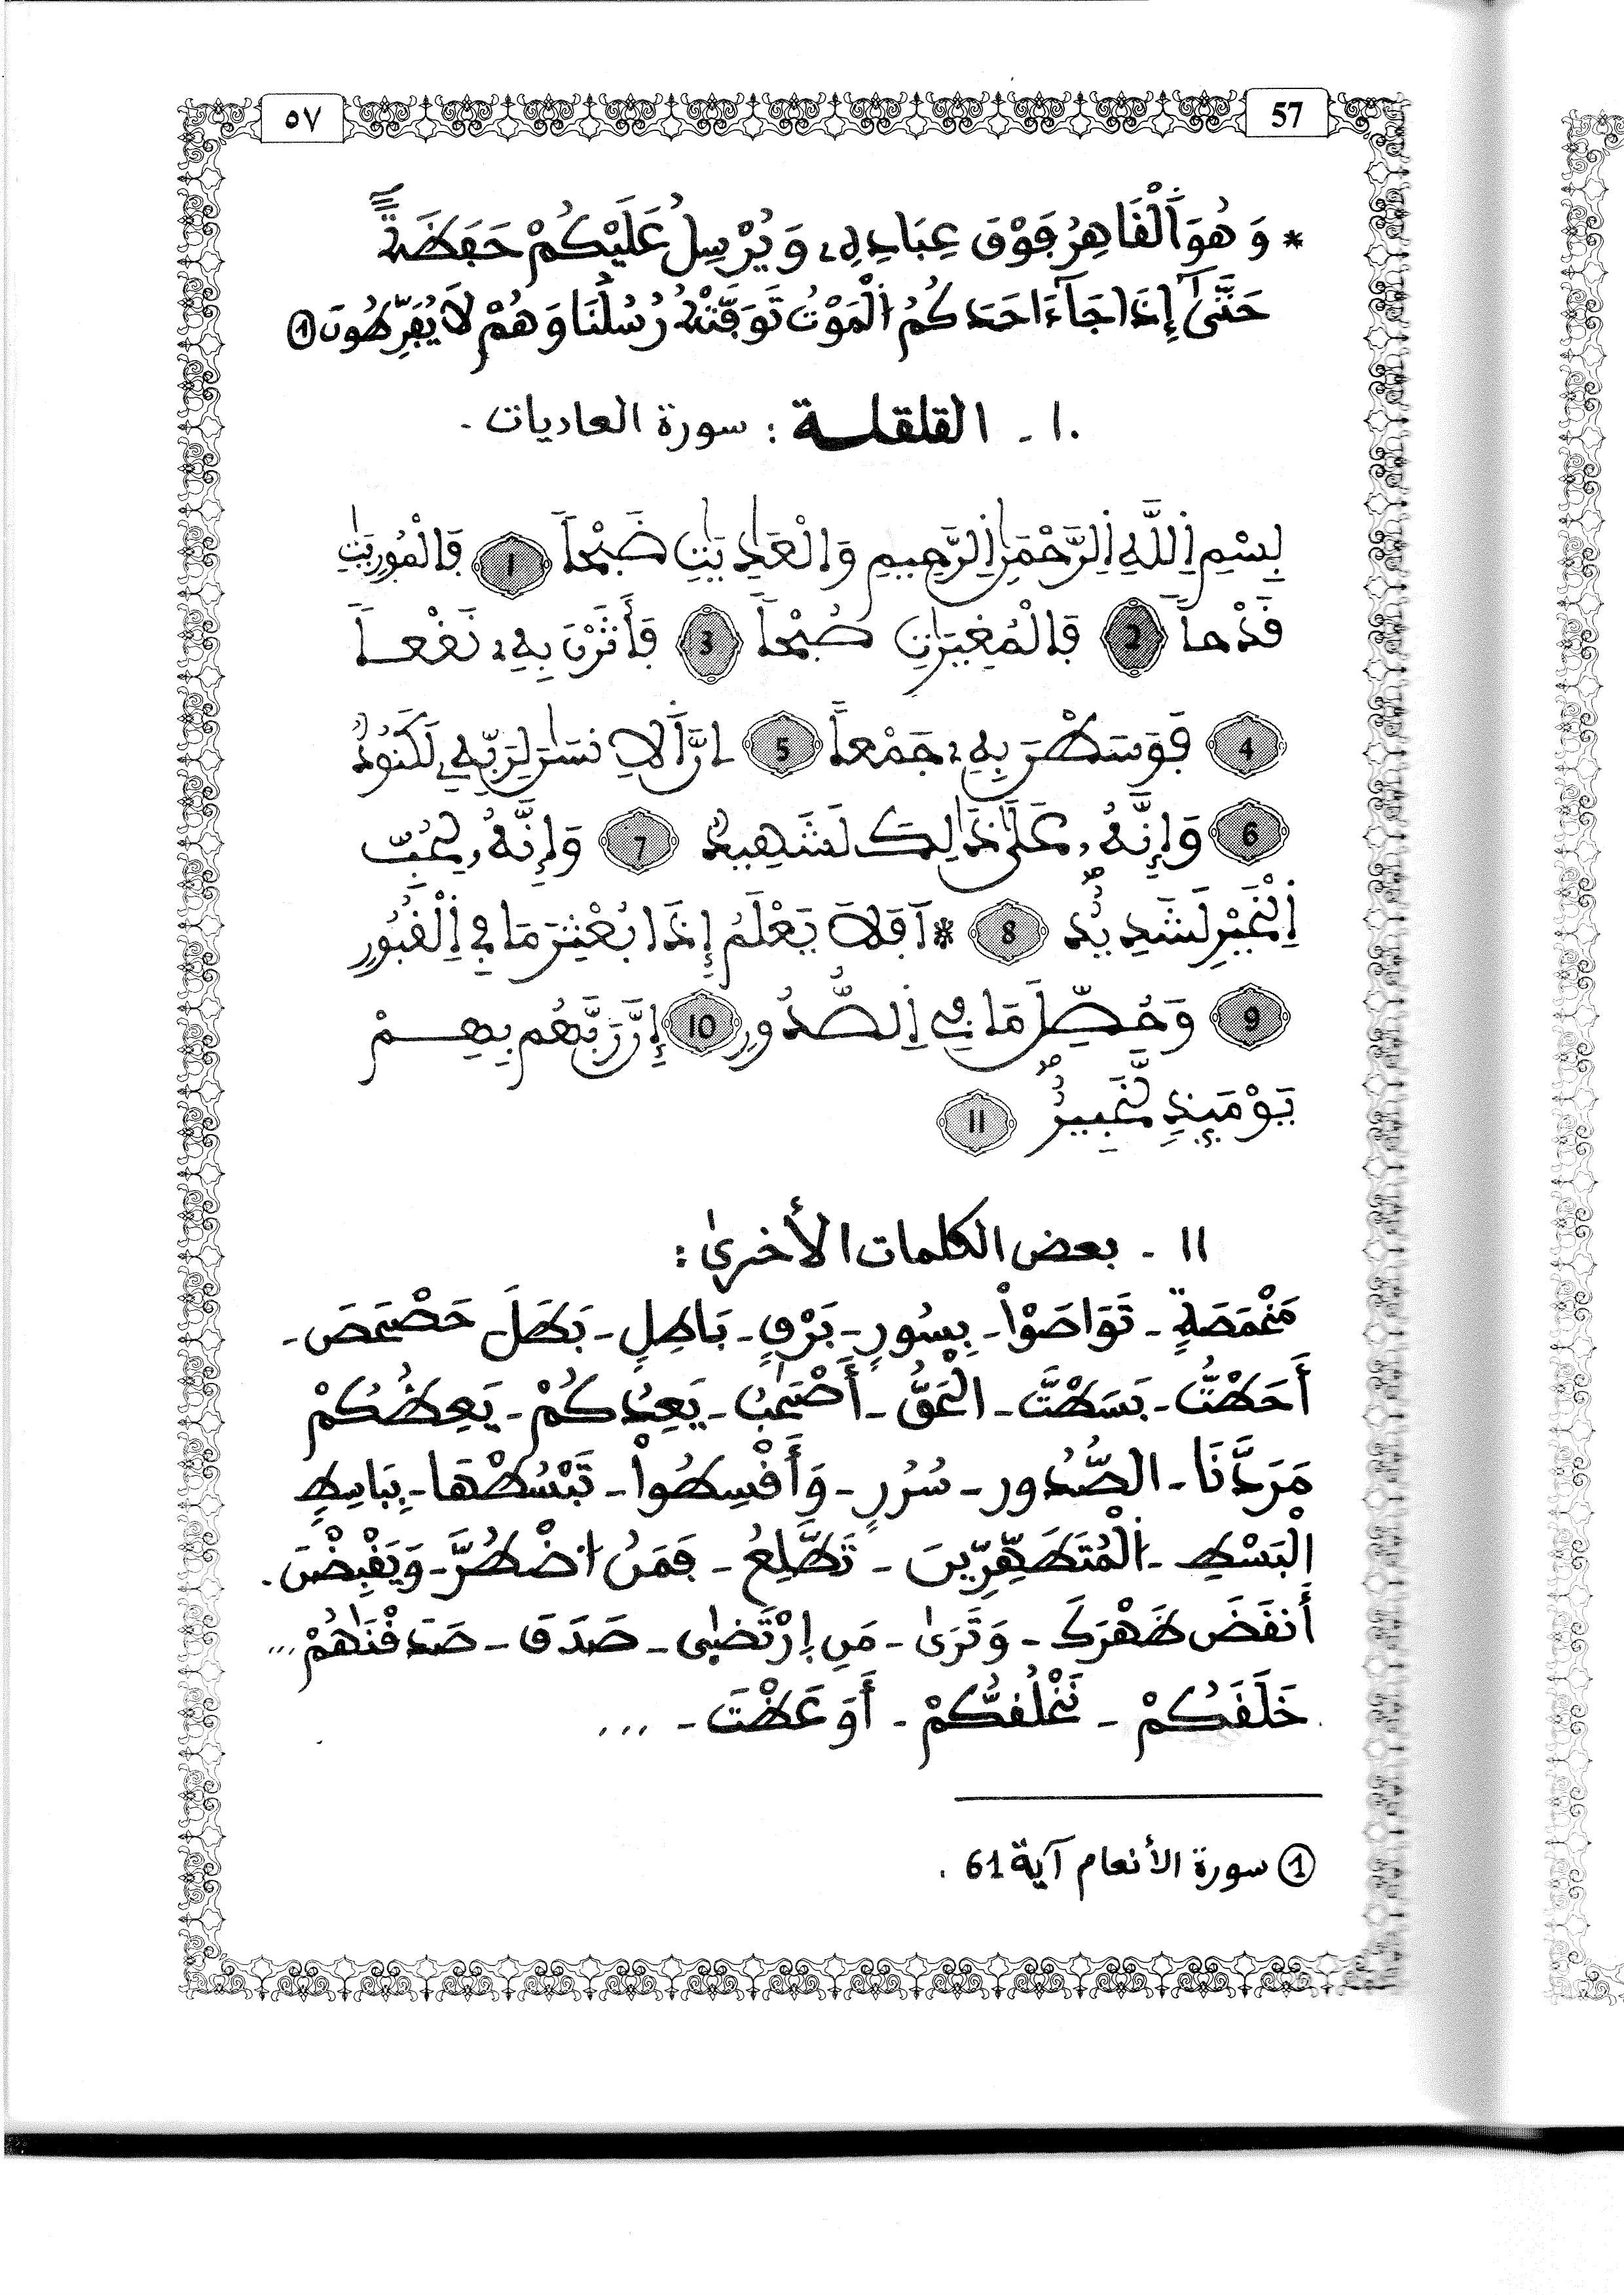 ٥٧ 57
* وَهُوَ اَلْقَاهِرُ فَوْقَ عِبَادِهِۦ وَيُرْسِلُ عَلَيْكُمْ حَفَظَةً
حَتَّىٰٓ إِذَا جَآءَ احَدَكُمُ اَلْمَوْتُ تَوَفَّتْهُ رُسُلُنَا وَهُمْ لَا يُفَرِّطُونَ ①
١٠ - القلقلة : سورة العاديات .
بِسْمِ اِللَّهِ اِلرَّحْمَٰنِ اِلرَّحِيمِ وَالْعَٰدِيَٰتِ ضَبْحاً 1 فَالْمُورِيَٰتِ
قَدْحاً 2 فَالْمُغِيرَٰتِ صُبْحاً 3 فَأَثَرْنَ بِهِۦ نَقْعاً
4 فَوَسَطْنَ بِهِۦ جَمْعاً 5 اِنَّ اَلِانسَٰنَ لِرَبِّهِۦ لَكَنُودٌ
6 وَإِنَّهُۥ عَلَىٰ ذَٰلِكَ لَشَهِيدٌ 7 وَإِنَّهُۥ لِحُبِّ
اِلْخَيْرِ لَشَدِيدٌ 8 * اَفَلَا يَعْلَمُ إِذَا بُعْثِرَ مَا فِي اِلْقُبُورِ
9 وَحُصِّلَ مَا فِي اِلصُّدُورِ 10 إِنَّ رَبَّهُم بِهِمْ
يَوْمَئِذٍ لَّخَبِيرٌ 11
١١ - بعض الكلمات الأخرىٰ :
مَخْمَصَةٍ - تَوَاصَوْاْ - بِسُورٍ - بَرْقٍ - بَاطِلٍ - بَطَلَ حَصْحَصَ -
أَحَطْتُّ - بَسَطْتَّ - الْحَقُّ - أَصْحَٰبُ - يَعِدُكُمْ - يَعِظُكُمْ
مَرَدَّنَا - الصُّدُورِ - سُرُرٍ - وَأَقْسِطُواْ - تَبْسُطْهَا - بِبَاسِطٍ
الْبَسْطِ - اَلْمُتَطَهِّرِينَ - تَطَّلِعُ - فَمَنُ اضْطُرَّ - وَيَقْبِضْنَ .
أَنقَضَ ظَهْرَكَ - وَتَرَىٰ - مَنِ اِرْتَضَىٰ - صَدَقَ - صَدَقْنَٰهُمْ ...
خَلَقَكُمْ - نَخْلُقكُّمْ - أَوَعَظْتَ - ...
① سورة الأنعام آية 61 .